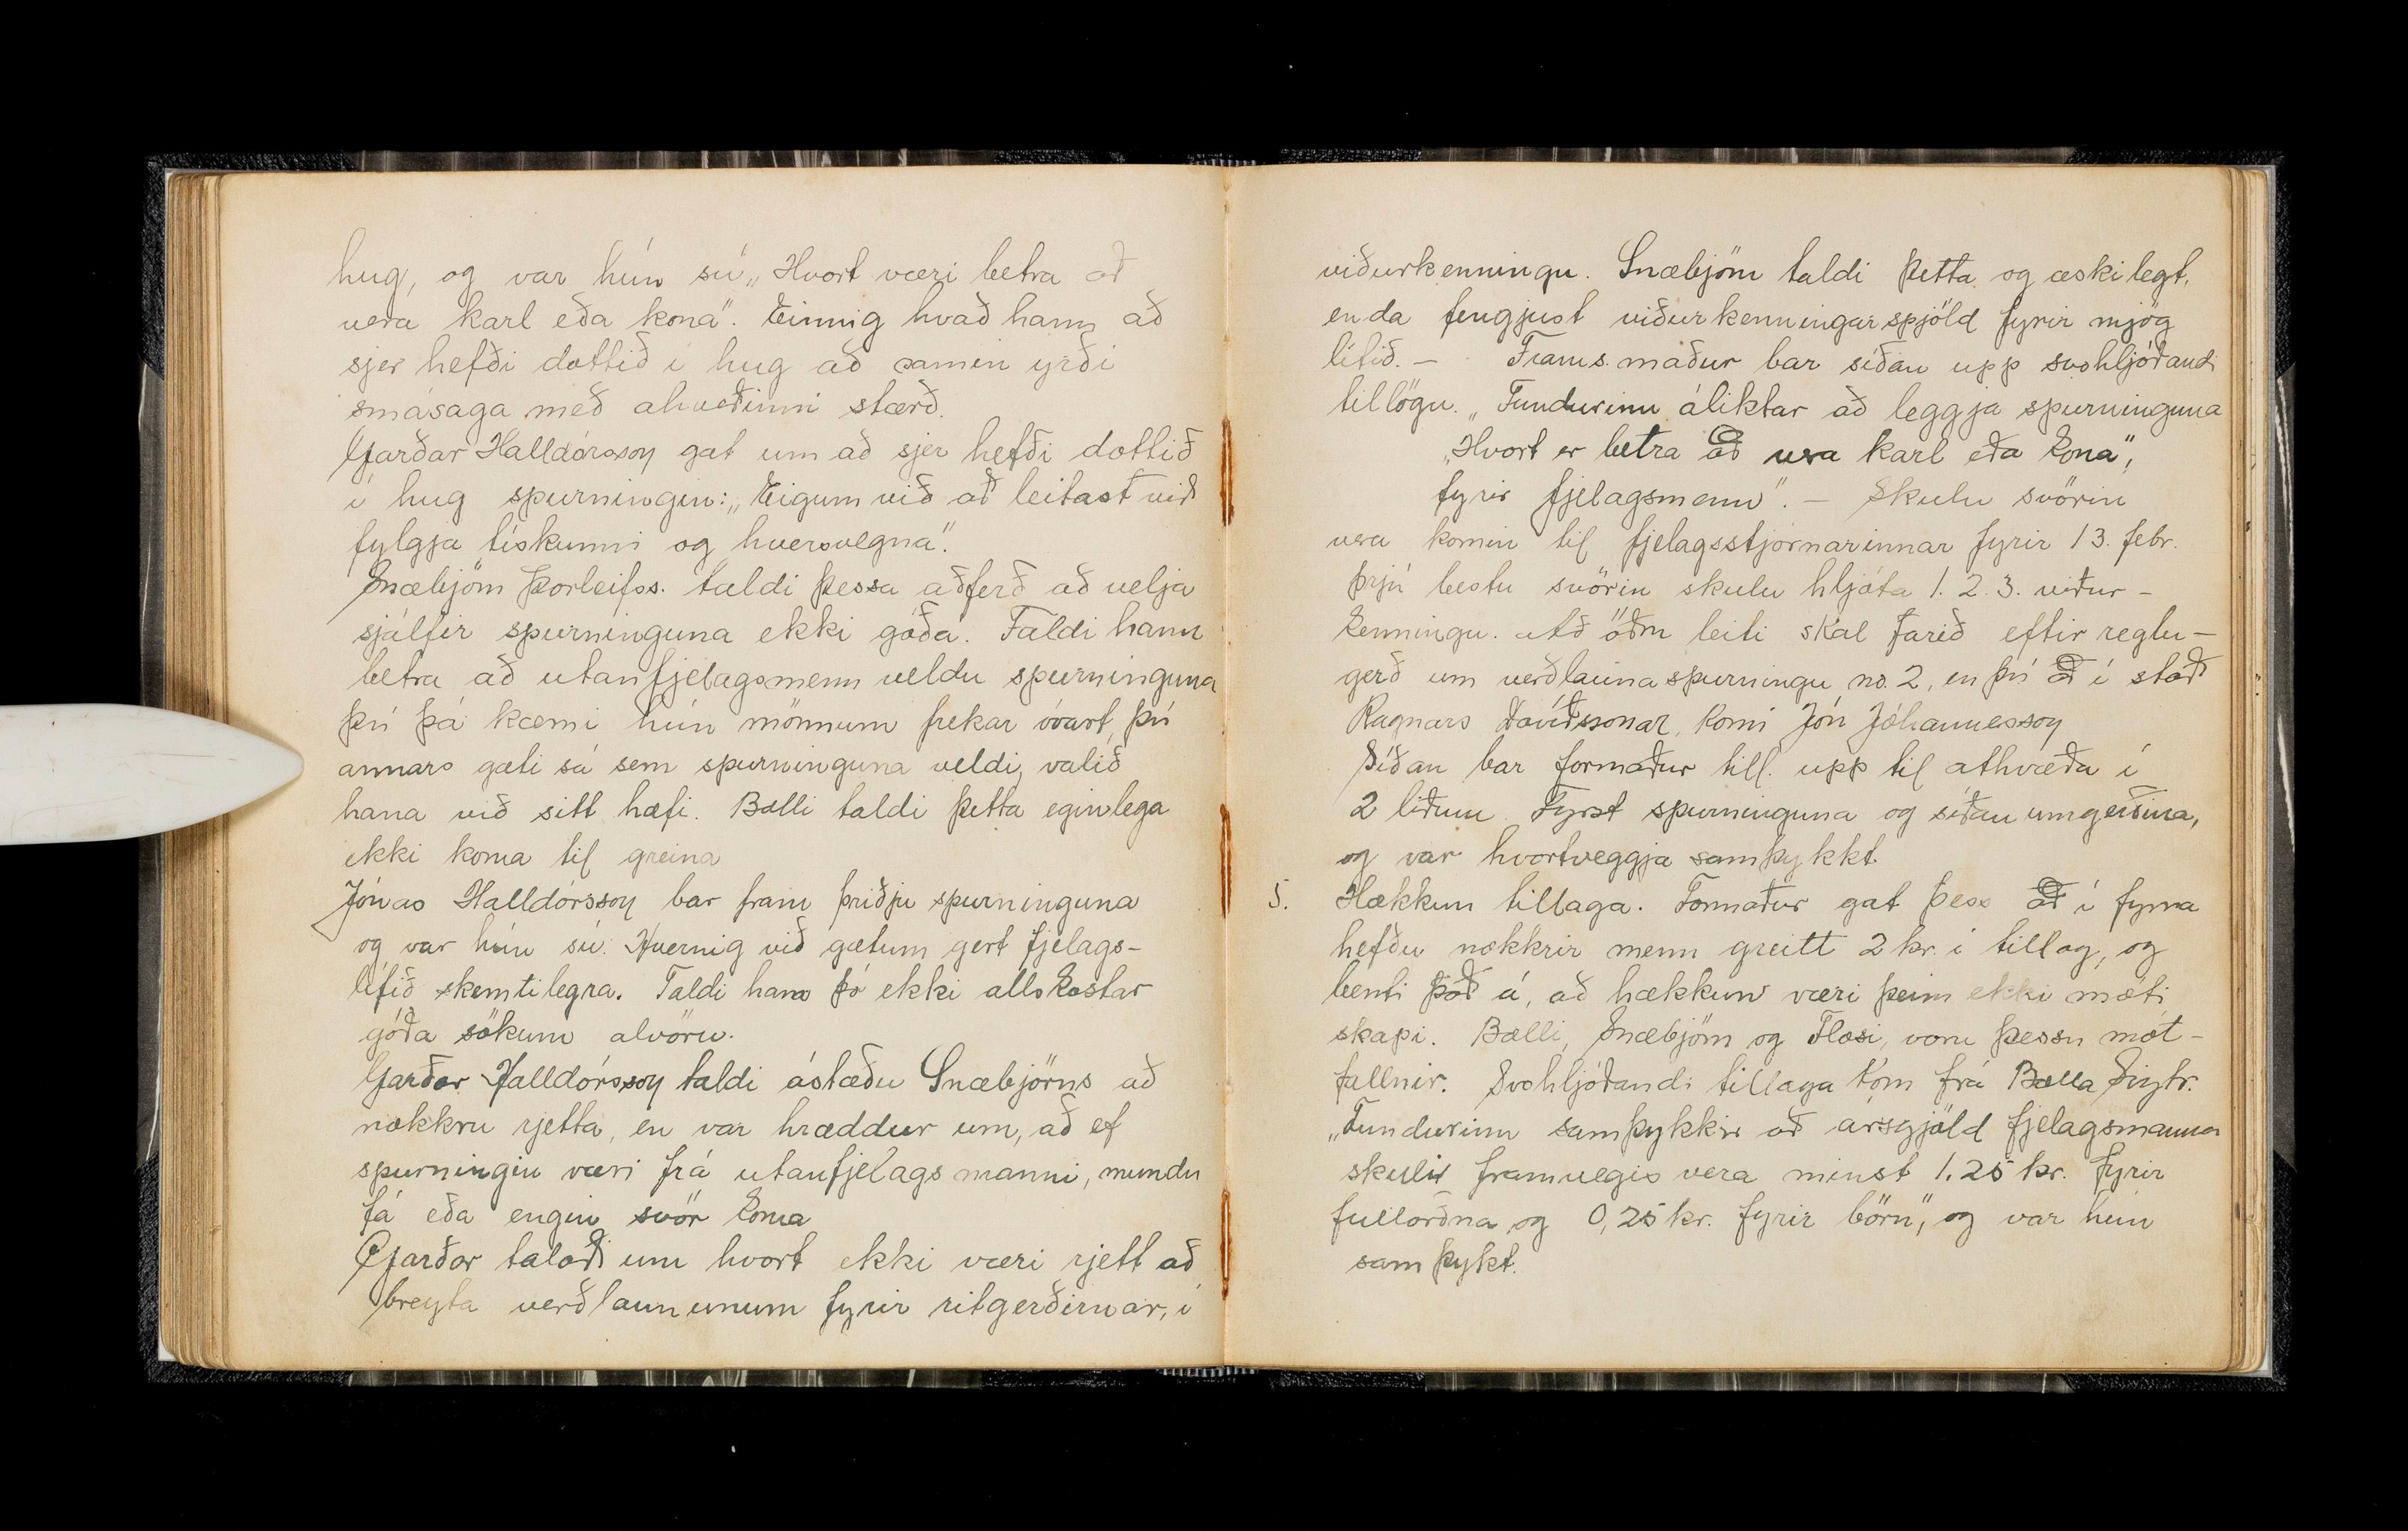 hug, og var hún sú „Hvort væri betra að
vera karl eða kona". Einnig hvað hann að
sjer hefði dottið í hug að samin yrði
smásaga með ahveðinni stærð.
Garðar Halldórsson gat um að sjer hefði dottið
í hug spurningin: „Eigum við að leitast við
fylgja tískunni og hversvegna".
Snæbjörn Þorleifss. taldi þessa aðferð að velja
sjálfir spurninguna ekki góða. Taldi hann
betra að utanfjelagsmenn veldu spurninguna
því þá kæmi hún mönnum frekar óvart, því
annars gæti sá sem spurninguna veldi, valið
hana við sitt hæfi. Balli taldi þetta eginlega
ekki koma til greina
Jónas Halldórsson bar fram þriðju spurninguna
og var hún sú: Hvernig við gætum gert fjelags-
lífið skemtilegra. Taldi hana þó ekki allskostar
góða sökum alvöru.
Garðar Halldórsson taldi ástæðu Snæbjörns að
nokkru rjetta, en var hræddur um, að ef
spurningin væri frá utanfjelagsmanni, mundu
fá eða engin svör koma
Garðar talaði um hvort ekki væri rjett að
breyta verðlaununum fyrir ritgerðirnar, í
viðurkenningu. Snæbjörn taldi þetta og æskilegt,
enda fengjust viðurkenningarspjöld fyrir mjög
lítið. — Frams. maður bar síðan upp svohljóðandi
tillögu. „Fundurinn áliktar að leggja spurninguna
„Hvort er betra að vera karl eða kona",
fyrir fjelagsmenn". — Skulu svörin
vera komin til fjelagsstjórnarinnar fyrir 13. febr.
Þrjú bestu svörin skulu hljóta 1. 2. 3. viður-
kenningu. Að öðru leiti skal farið eftir reglu-
gerð um verðlaunaspurningu no. 2, en því að í stað
Ragnars Davíðssonar, komi Jón Jóhannesson
Síðan bar formaður till. upp til athvæða í
2 liðum. Fyrst spurninguna og síðan umgerðina,
og var hvortveggja samþykkt.
5. Hækkun tillaga. Formaður gat þess að í fyrra
hefðu nokkrir menn greitt 2 kr. í tillag, og
benti það á, að hækkun væri þeim ekki móti
skapi. Balli, Snæbjörn og Flosi, voru þessu mót-
fallnir. Svohljóðandi tillaga kom frá Balla Sigtr.
„Fundurinn samþykkir að ársgjöld fjelagsmanna
skuli framvegis vera minst 1.25 kr. fyrir
fullorðna og 0,25 kr. fyrir börn", og var hún
samþykt.